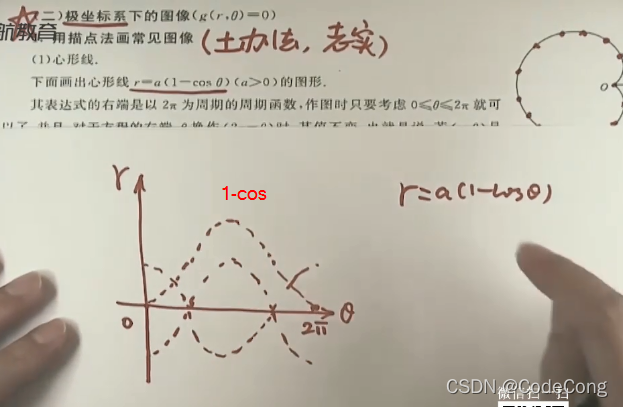 二)极坐标系下的图像(g(r,θ)=0)
航教育
用描点法画常见图像 (土办法,老实)
(1)心形线.
下面画出心形线 r=a(1-cos θ)(a>0)的图形.
其表达式的右端是以 2π 为周期的周期函数,作图时只要考虑 0≤θ≤2π 就可
O
r
1-cos
r=a(1-cosθ)
0
2π
θ
微信扫一扫
CSDN @CodeCong